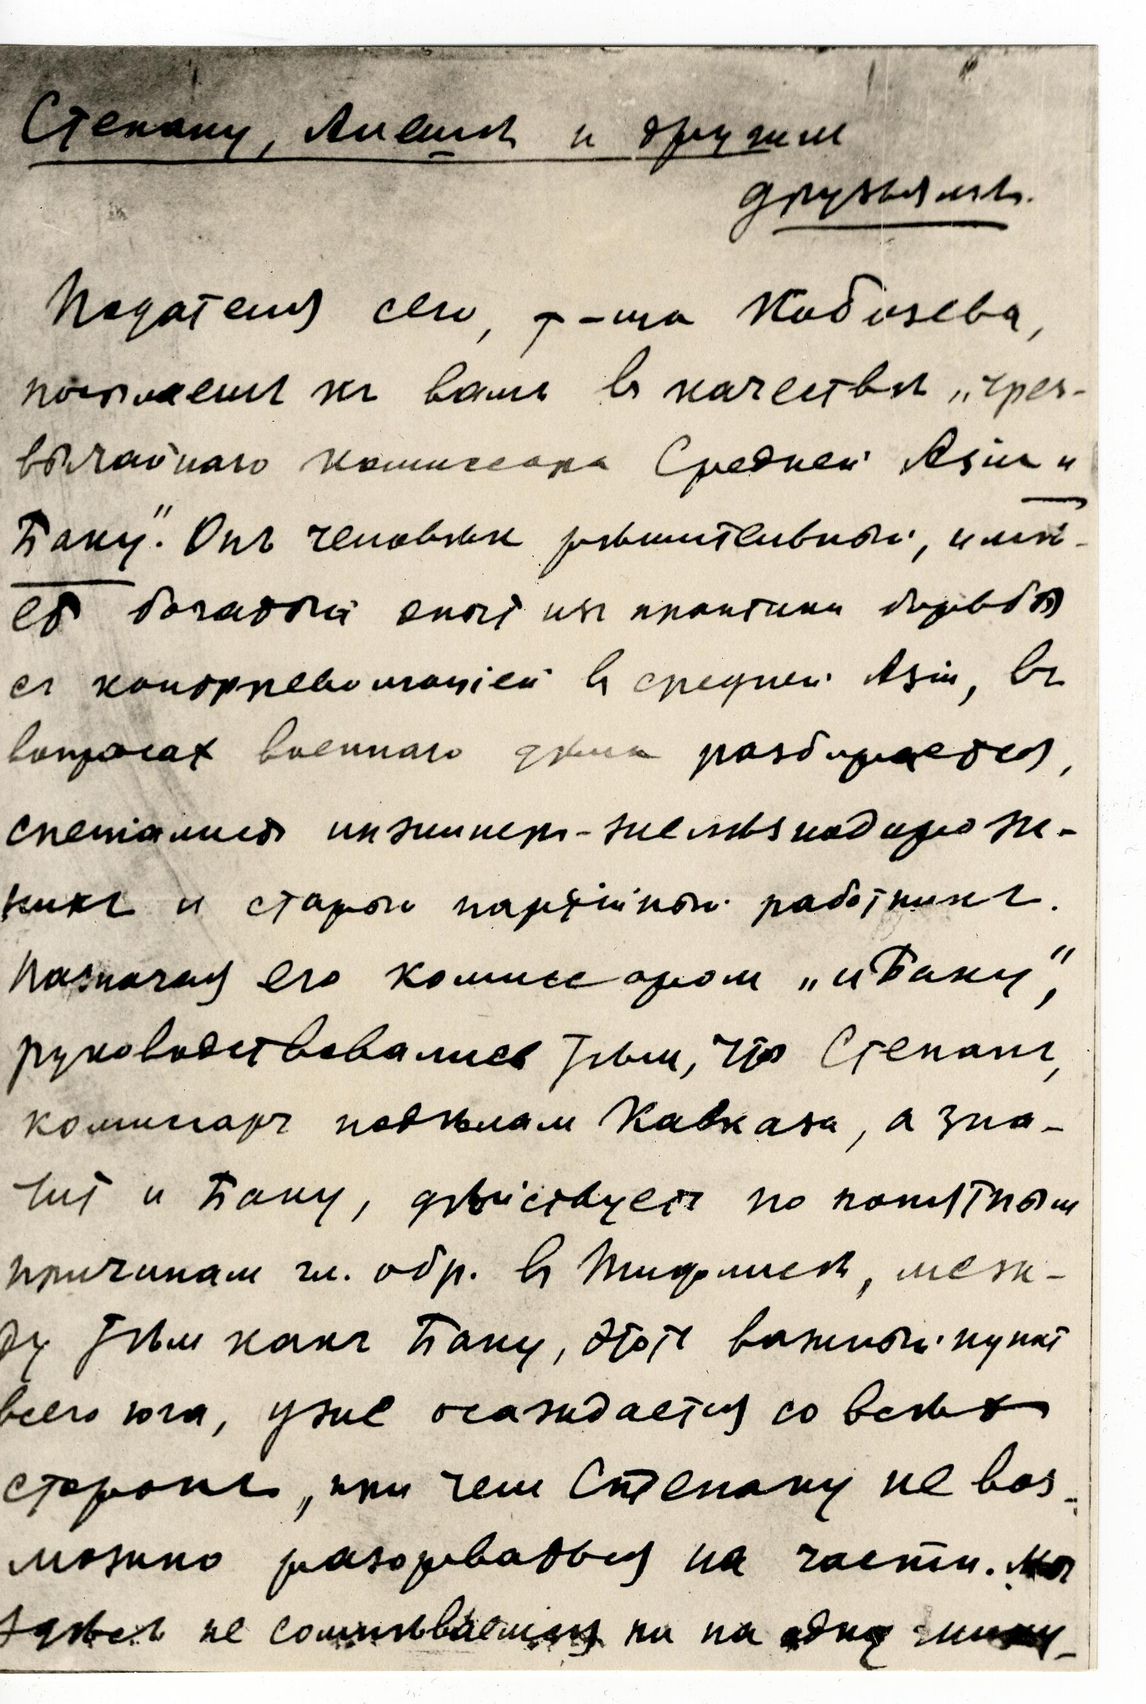 Степану, Алешѣ и другим
друзьямъ.
Подателя сего, т-ща Кобозева,
посылаем къ вамъ въ качествѣ „чрез-
вычайнаго комиссара Средней Азіи и
Баку". Онъ человѣк рѣшительный, имѣ-
ет богатый опыт из практики борьбы
съ контрреволюціей въ средней Азіи, въ
вопросах военнаго дѣла разбирается,
спеціалист инженеръ-желѣзнодорож-
никъ и старый партійный работникъ.
Назначая его комиссаром „и Баку",
руководствовались тѣм, что Степанъ,
комиссаръ по дѣлам Кавказа, а зна-
чит и Баку, дѣйствуетъ по понятным
причинам гл. обр. въ Тифлисѣ, меж-
ду тѣм какъ Баку, этотъ важный пункт
всего юга, уже осаждается со всѣх
сторонъ, при чем Степану не воз-
можно разорваться на части. Мы
здѣсь не сомнѣваемся ни на одну мину-